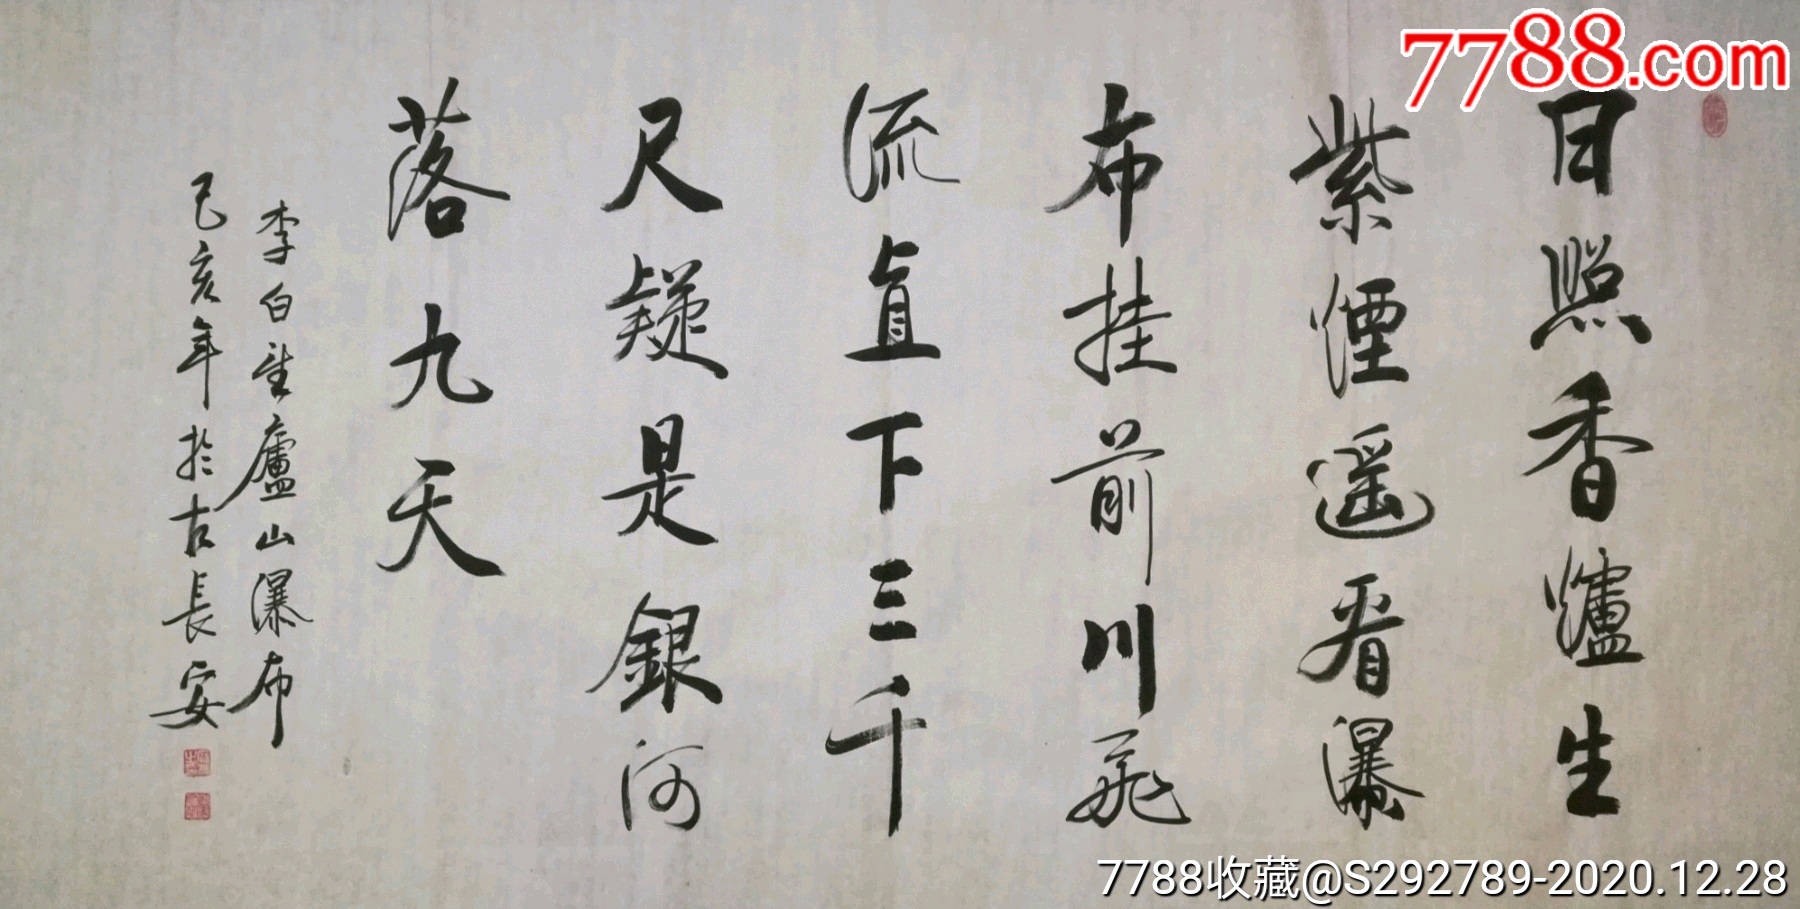 7788.com
日照香爐生
紫煙遥看瀑
布挂前川飛
流直下三千
尺疑是銀河
落九天
李白望廬山瀑布
己亥年於古長安
7788收藏@S292789-2020.12.28